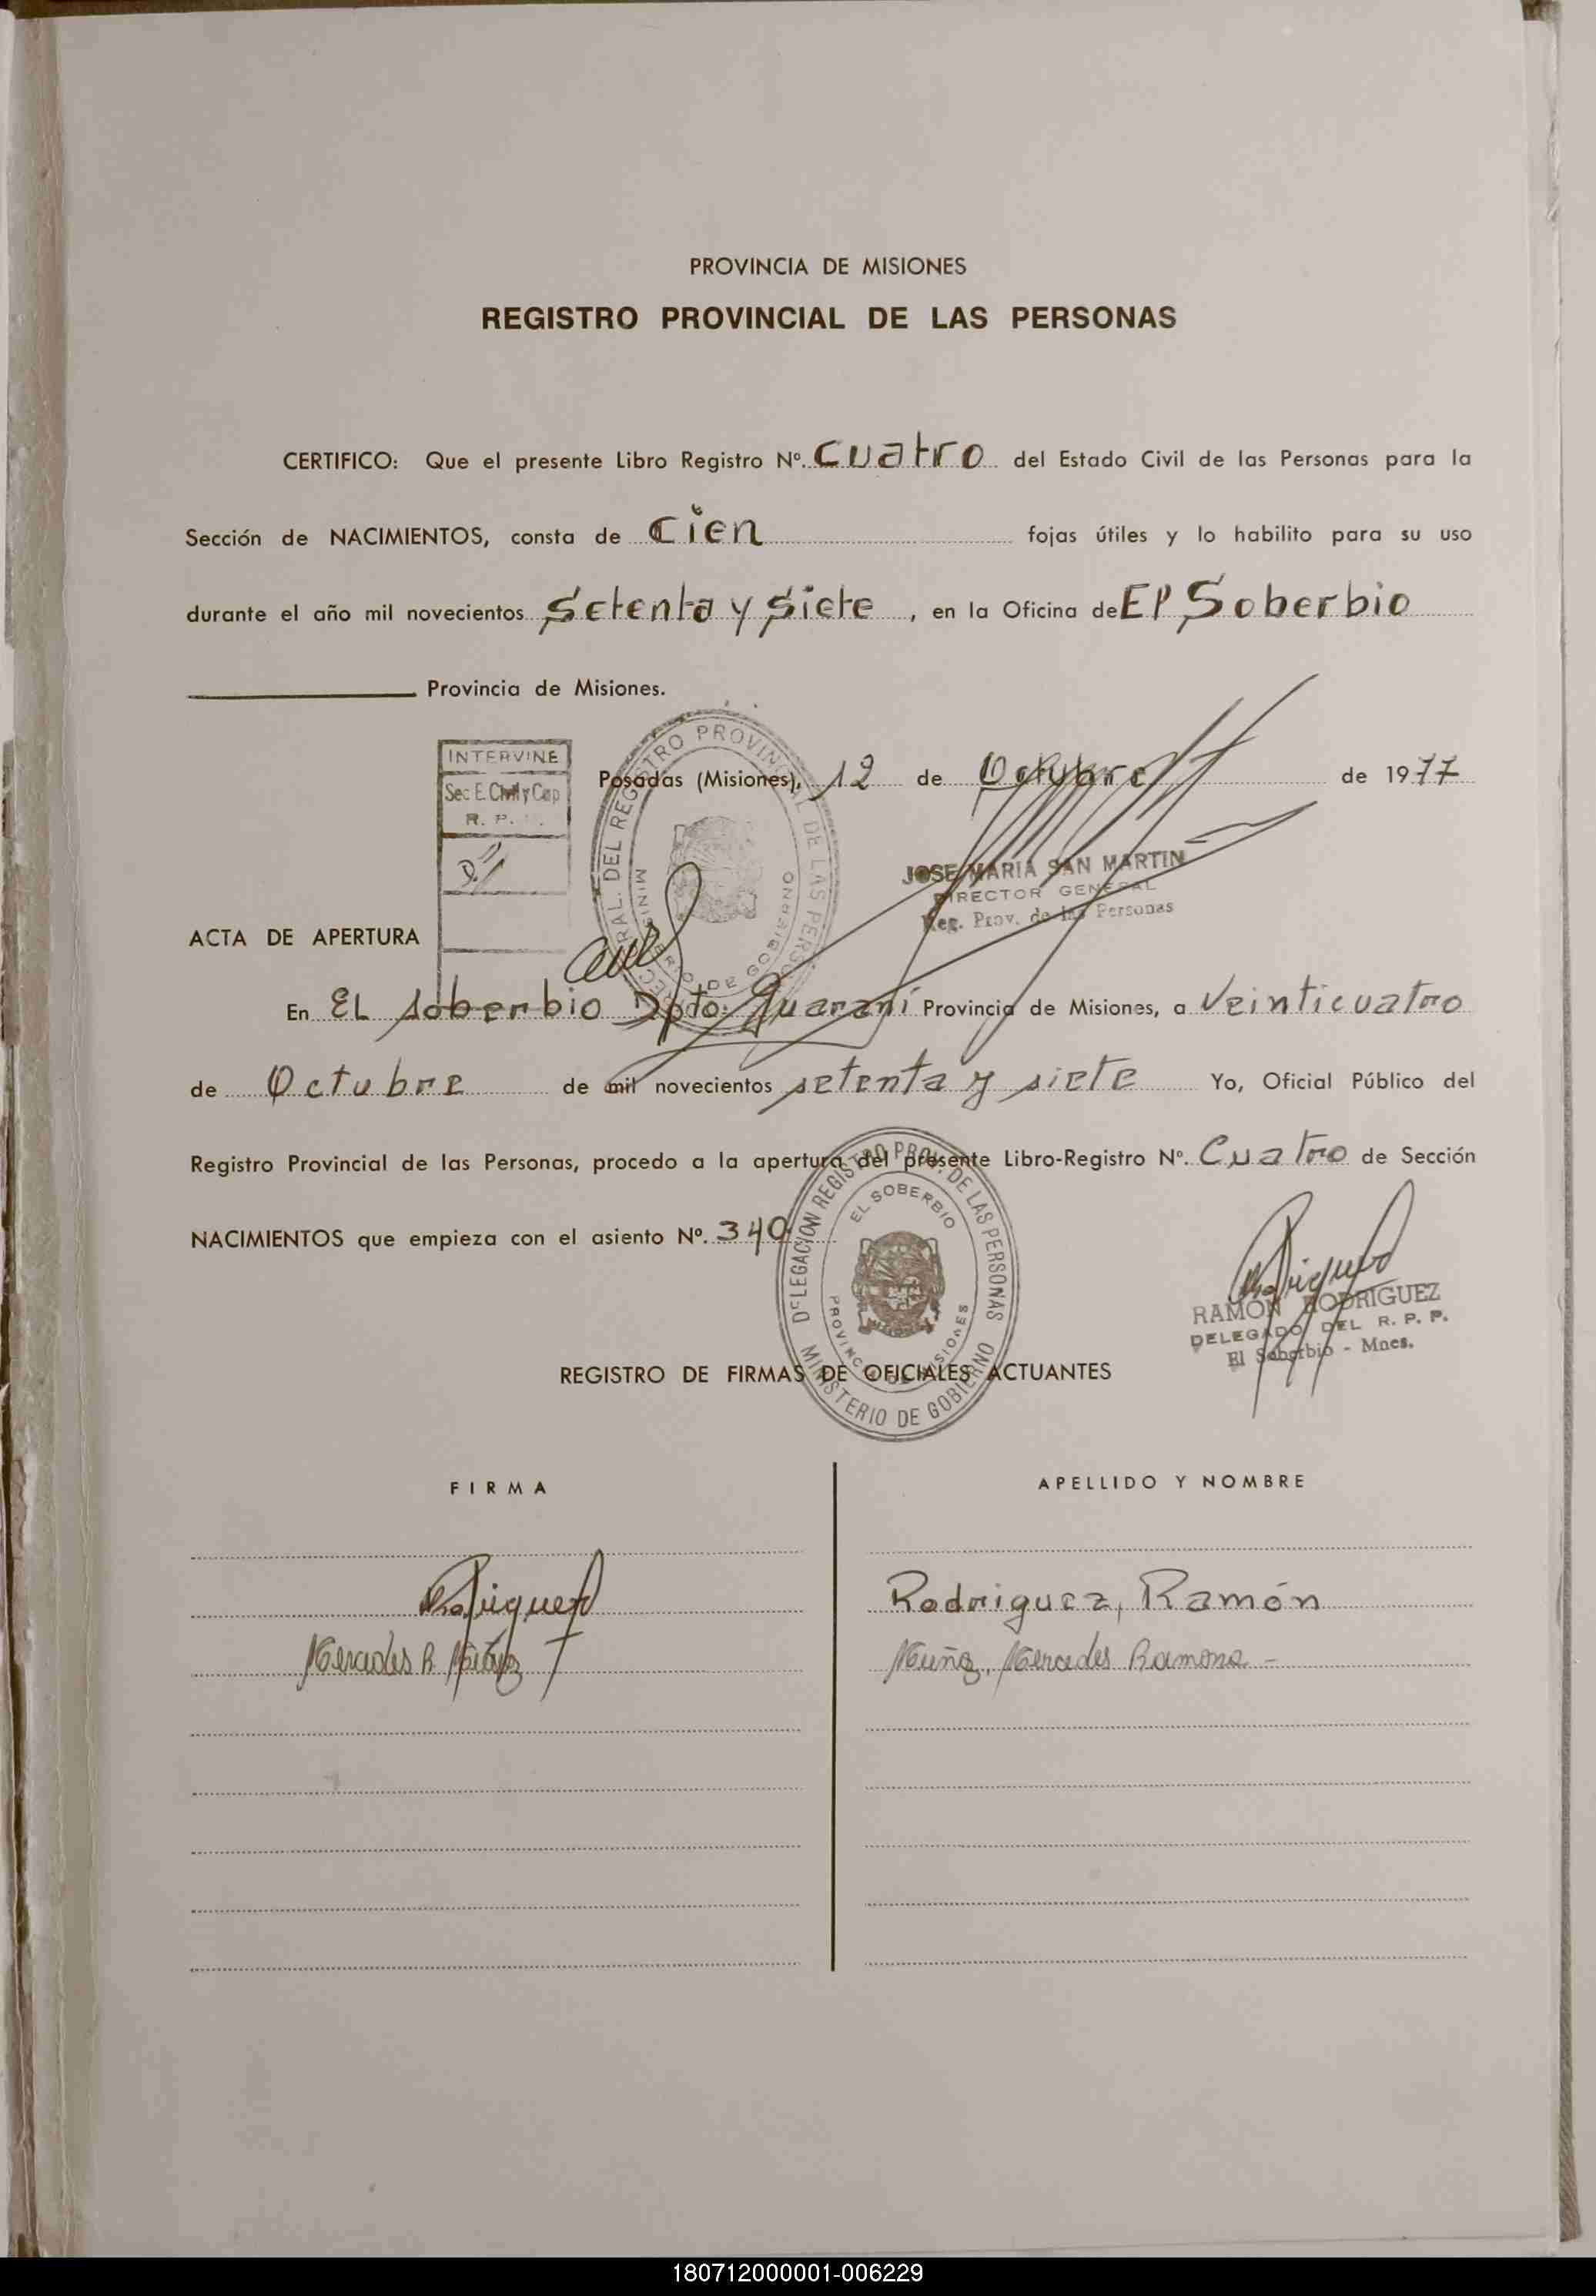 PROVINCIA DE MISIONES
REGISTRO PROVINCIAL DE LAS PERSONAS
CERTIFICO: Que el presente Libro Registro Nº. Cuatro del Estado Civil de las Personas para la
Sección de NACIMIENTOS, consta de Cien fojas útiles y lo habilito para su uso
durante el año mil novecientos Setenta y Siete, en la Oficina de El Soberbio
Provincia de Misiones.
INTERVINE
Sec E. Civil y Cap
R. P.
DIRECCION GRAL. DEL REGISTRO PROVINCIAL DE LAS PERSONAS
MINISTERIO DE GOBIERNO
Posadas (Misiones), 12 de Octubre de 1977
JOSE MARIA SAN MARTIN
DIRECTOR GENERAL
Reg. Prov. de las Personas
ACTA DE APERTURA
En EL soberbio Dpto. Guaraní Provincia de Misiones, a Veinticuatro
de Octubre de mil novecientos setenta y siete Yo, Oficial Público del
Registro Provincial de las Personas, procedo a la apertura del presente Libro-Registro Nº. Cuatro de Sección
NACIMIENTOS que empieza con el asiento Nº. 340
DELEGACION REGISTRO PROV. DE LAS PERSONAS
EL SOBERBIO
PROVINCIA DE MISIONES
MINISTERIO DE GOBIERNO
Rodriguez
RAMON RODRIGUEZ
DELEGADO DEL R. P. P.
El Soberbio - Mnes.
REGISTRO DE FIRMAS DE OFICIALES ACTUANTES
FIRMA APELLIDO Y NOMBRE
Rodriguez Rodriguez, Ramón
Mercedes R. Muñoz, Mercedes Ramona -
180712000001-006229